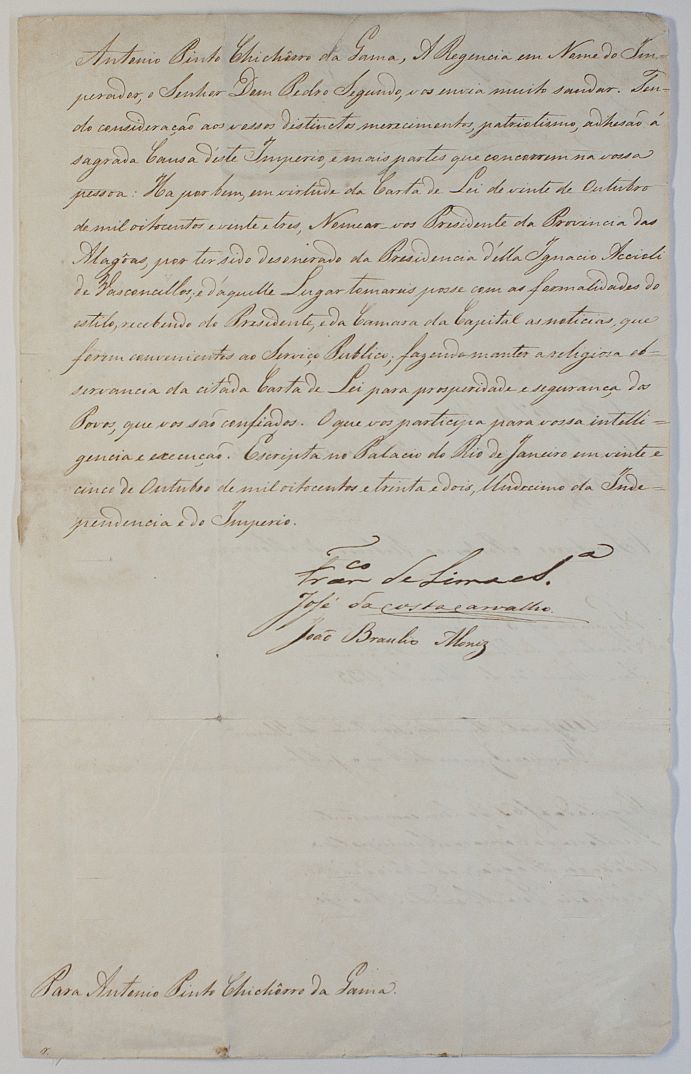 Antonio Pinto Chichôrro da Gama, A Regencia em Nome do Im-
perador, o Senhor Dom Pedro Segundo, vos envia muito saudar. Ten-
do consideração aos vossos distinctos merecimentos, patriotismo, adhesão á
sagrada Causa d'éste Imperio, e mais partes que concorrem na vossa
pessoa: Ha por bem, em virtude da Carta de Lei de vinte de Outubro
de mil oitocentos e vinte e tres, Nomear-vos Presidente da Provincia das
Alagôas, por ter sido desonerado da Presidencia d'élla Ignacio Accioli
de Vasconcellos; e d'aquelle Lugar tomareis posse com as formalidades do
estilo, recebendo do Presidente, e da Camara da Capital as noticias, que
forem convenientes ao Serviço Publico; fazendo manter a religiosa ob-
servancia da citada Carta de Lei para prosperidade e segurança dos
Povos, que vos são confiados. O que vos participa para vossa intelli-
gencia e execução. Escripta no Palacio do Rio de Janeiro em vinte e
cinco de Outubro de mil oitocentos e trinta e dois, Undecimo da Inde-
pendencia e do Imperio.
Fran.co de Lima e S.a
José da Costa Carvalho
João Braulio Moniz
Para Antonio Pinto Chichôrro da Gama.